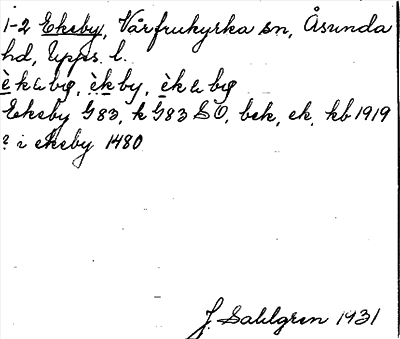 1-2 Ekeby, Vårfrukyrka sn, Åsunda
hd, Upps. l.
èkəby, èkby, èkəby
Ekeby G83, k G83 SO, bek, ek, kb 1919
? i ekeby 1480
J. Sahlgren 1931